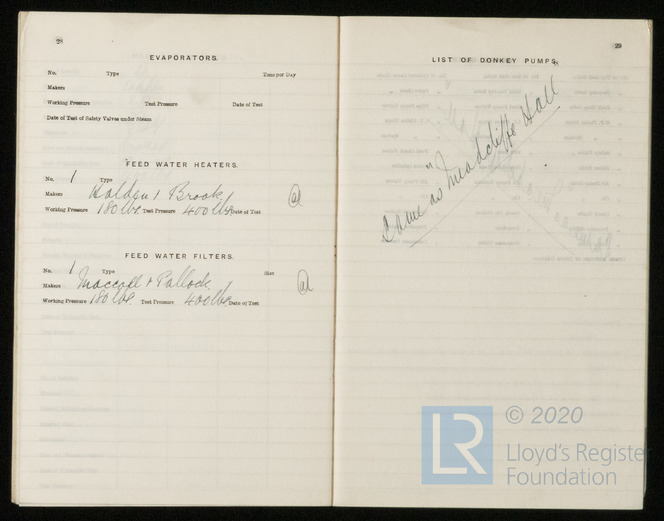 28
EVAPORATORS.
No. Type Tons per Day
Makers
Working Pressure Test Pressure Date of Test
Date of Test of Safety Valves under Steam
FEED WATER HEATERS.
No. 1 Type
Makers Holden & Brook
Working Pressure 180 lbs. Test Pressure 400 lbs Date of Test
FEED WATER FILTERS.
No. 1 Type Size
Makers Maccoll & Pollock
Working Pressure 180 lbs. Test Pressure 400 lbs Date of Test
29
LIST OF DONKEY PUMPS.
Same as " Hall
© 2020
LR
Lloyd's Register
Foundation